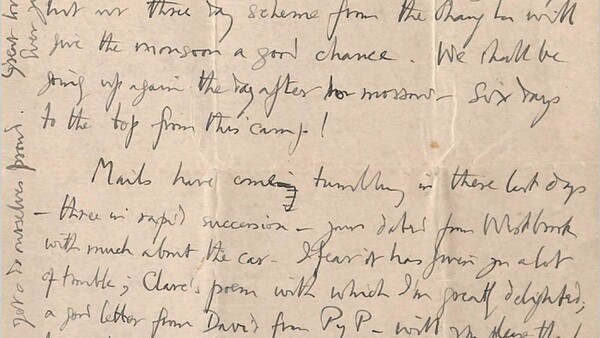 but our three day scheme from the Chang La will
give the monsoon a good chance. We shall be
going up again the day after to morrow - Six days
to the top from this camp!
Mails have come tumbling in these last days
- three in rapid succession - yours dated from Westbrook
with much about the car - I fear it has given you a lot
of trouble; Clare's poem with which I'm greatly delighted;
a good letter from David from P y P - will you please thank
get & do ourselves proud. Great love